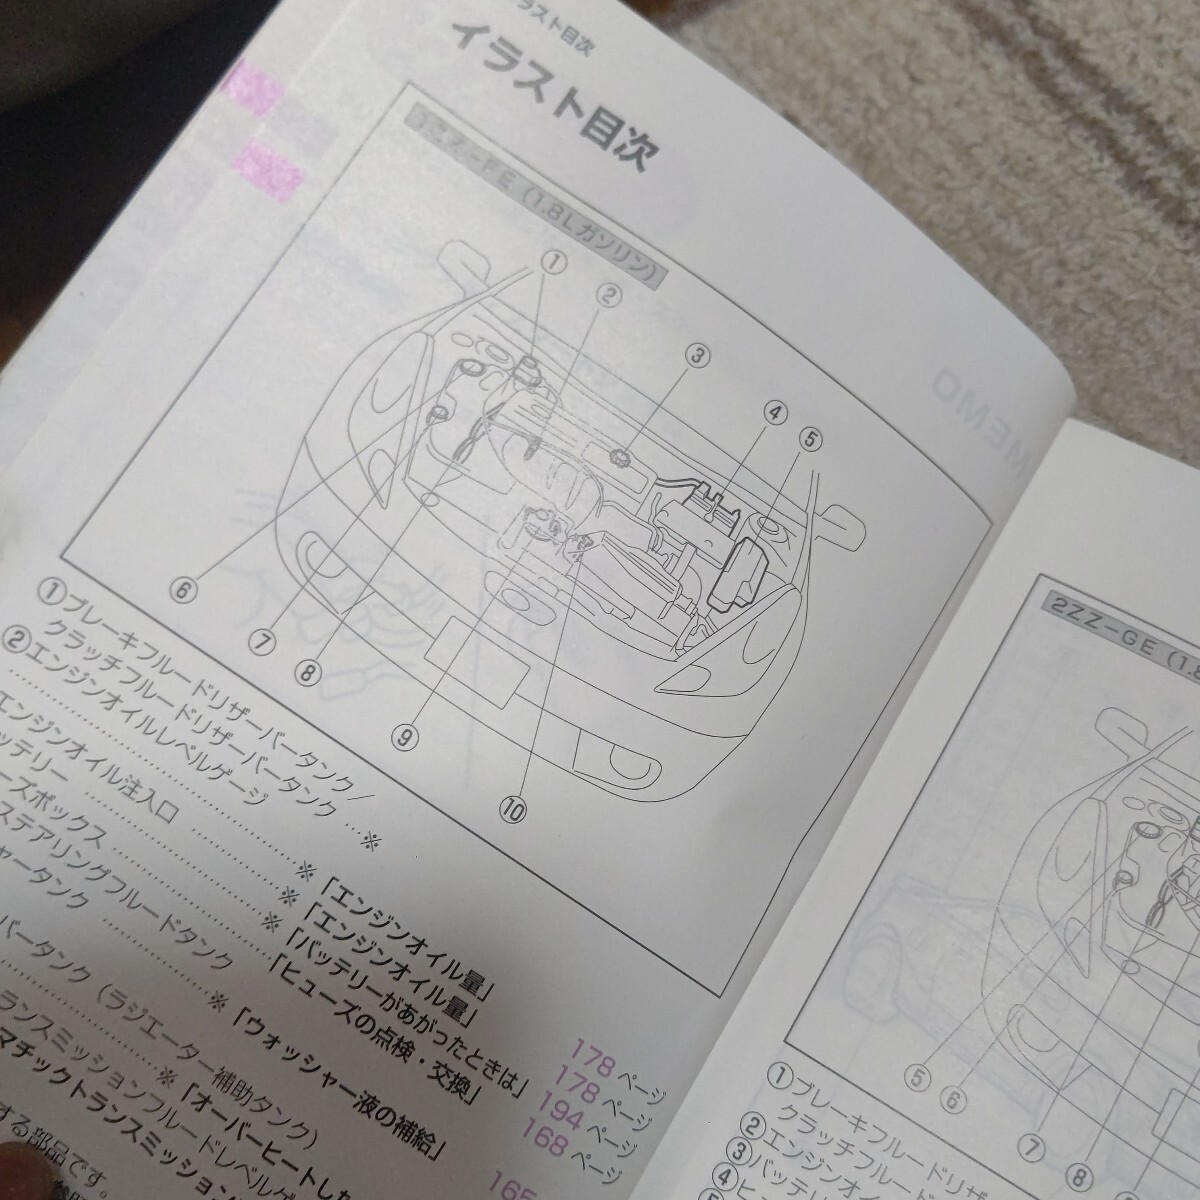 ラスト目次
イラスト目次
1ZZ-FE(1.8Lガソリン)
①
②
③
④
⑤
⑥
⑦
⑧
⑨
⑩
①ブレーキフルードリザーバータンク/
クラッチフルードリザーバータンク …※
②エンジンオイルレベルゲージ
………※「エンジンオイル量」 178 ページ
エンジンオイル注入口 ………※「エンジンオイル量」 178 ページ
ッテリー ………※「バッテリーがあがったときは」 194 ページ
ューズボックス ………「ヒューズの点検・交換」 168 ページ
ステアリングフルードタンク ………※
ャータンク ………※「ウォッシャー液の補給」 165
バータンク(ラジエーター補助タンク)
………※「オーバーヒートした
ランスミッションフルードレベルゲ
マチックトランスミッション
する部品です。
MEMO
2ZZ-GE(1.8
⑤
⑥
⑦
⑧
①ブレーキフルードリザ
クラッチフルード
②エンジンオイ
③バッテリ
④ヒュ